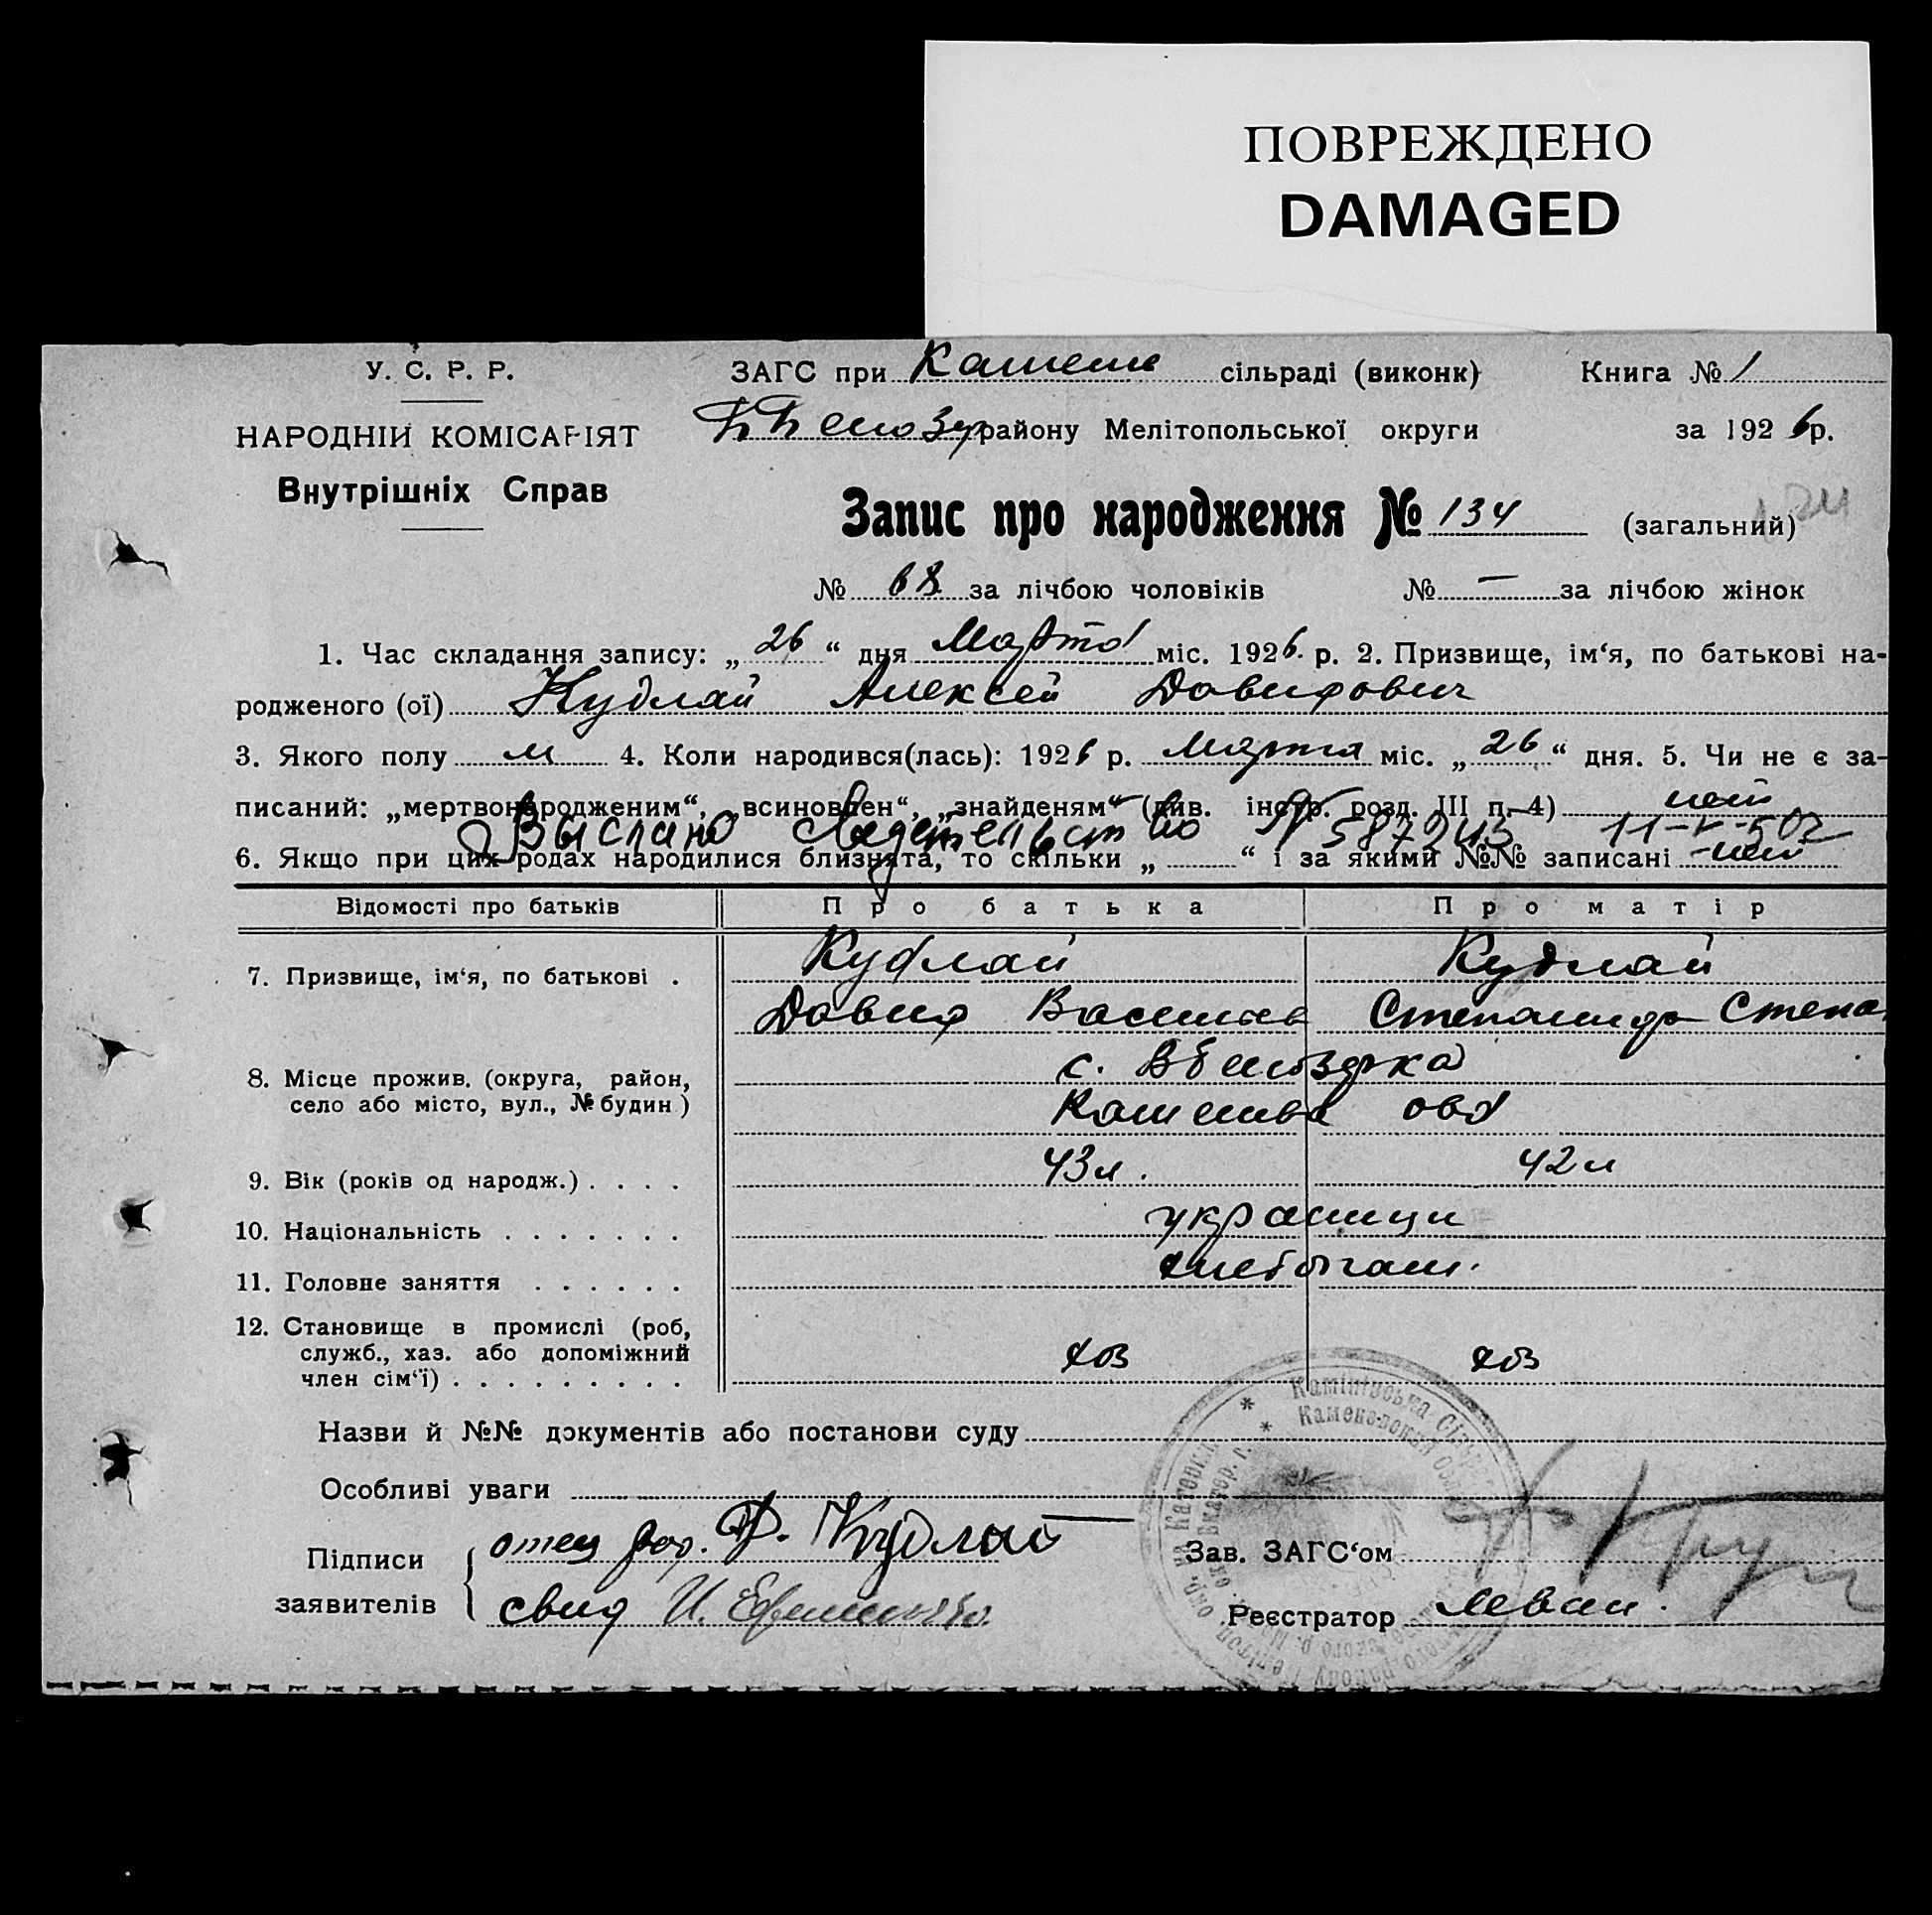 ПОВРЕЖДЕНО
DAMAGED
У. С. Р. Р.
НАРОДНІЙ КОМІСАРІЯТ
Внутрішніх Справ
ЗАГС при Камень сільраді (виконк) Книга № 1
району Мелітопольської округи за 1926 р.
Запис про народження № 134 (загальний)
№ 68 за лічбою чоловіків № — за лічбою жінок
1. Час складання запису: „ 26 “ дня Марта міс. 1926 р. 2. Призвище, ім‘я, по батькові на-
родженого (ої) Кудлай Алексей Давидович
3. Якого полу м 4. Коли народився(лась): 1926 р. Марта міс. „ 26 “ дня. 5. Чи не є за-
писаний: „мертвонародженим“, „всиновлен“, „знайденям“ (див. інстр. розд. III п. 4)
Выслано Сведетельство № 587243
6. Якщо при цих родах народилися близнята, то скільки „ “ і за якими №№ записані
Відомості про батьків Про батька Про матір
7. Призвище, ім‘я, по батькові . Кудлай Кудлай
Давид Васильев Степанида Степа
8. Місце прожив. (округа, район, село або місто, вул., № будин) с. Вбелозерка
9. Вік (років од народж.) . . . . 43 л. 42 л
10. Національність . . . . . . . украинци
11. Головне заняття . . . . . . хлебопаш.
12. Становище в промислі (роб, служб., хаз. або допоміжний член сім‘ї) . . . . . . . . . хоз хоз
Назви й №№ документів або постанови суду
Особливі уваги
Підписи заявителів отец Кудлай
свид И.
Зав. ЗАГС‘ом
Реєстратор Леван.